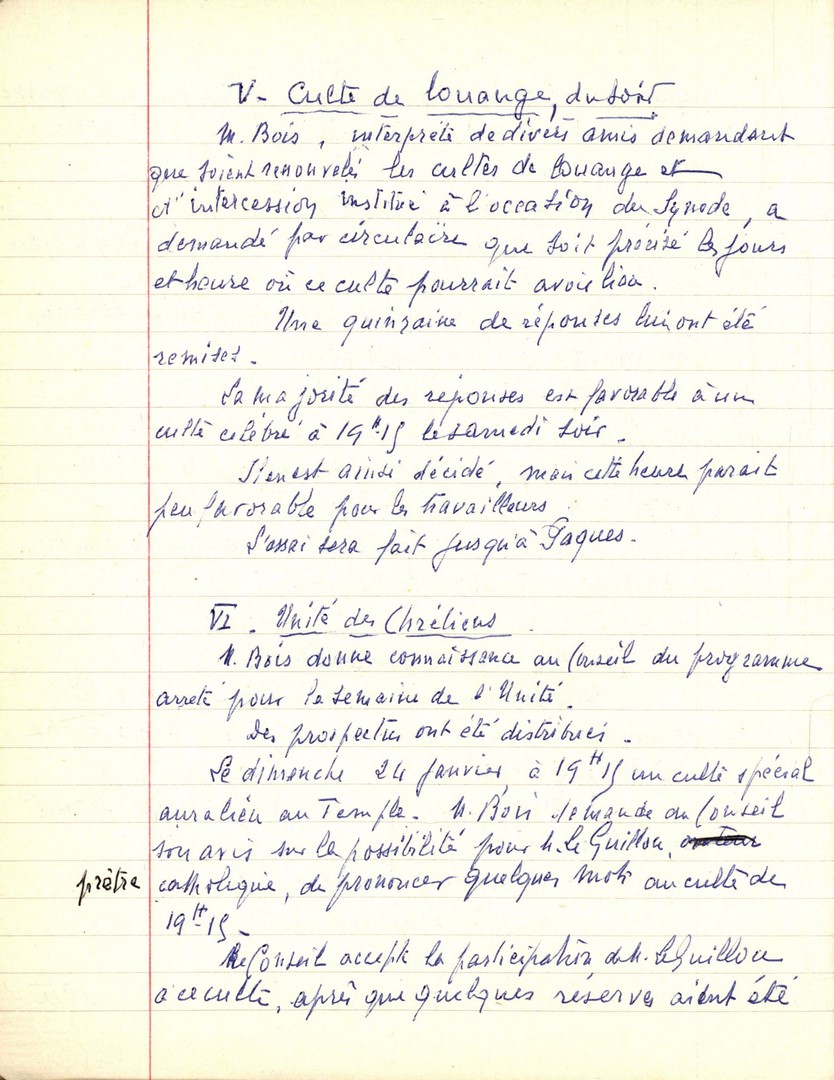 V- Culte de louange, du soir
M. Bois, interprète de divers amis demandant
que soient renouvelés les cultes de louange et
d'intercession institué à l'occasion du Synode, a
demandé par circulaire que soit précisé les jours
et heure où ce culte pourrait avoir lieu.
Une quinzaine de réponses lui ont été
remises.
La majorité des réponses est favorable à un
culte célébré à 19H-15 le samedi soir.
Il en est ainsi décidé, mais cette heure parait
peu favorable pour les travailleurs.
L'essai sera fait jusqu'à Pâques.
VI. Unité des Chrétiens
M. Bois donne connaissance au Conseil du programme
arrêté pour la semaine de l'Unité.
Des prospectus ont été distribués.
Le dimanche 24 janvier, à 19H15 un culte spécial
aura lieu au Temple. M. Bois demande au Conseil
son avis sur la possibilité pour M. le Guillou,
prêtre catholique, de prononcer quelques mots au culte de
19H-15-
Le Conseil accepte la participation de M. le Guillou
à ce culte, après que quelques réserves aient été